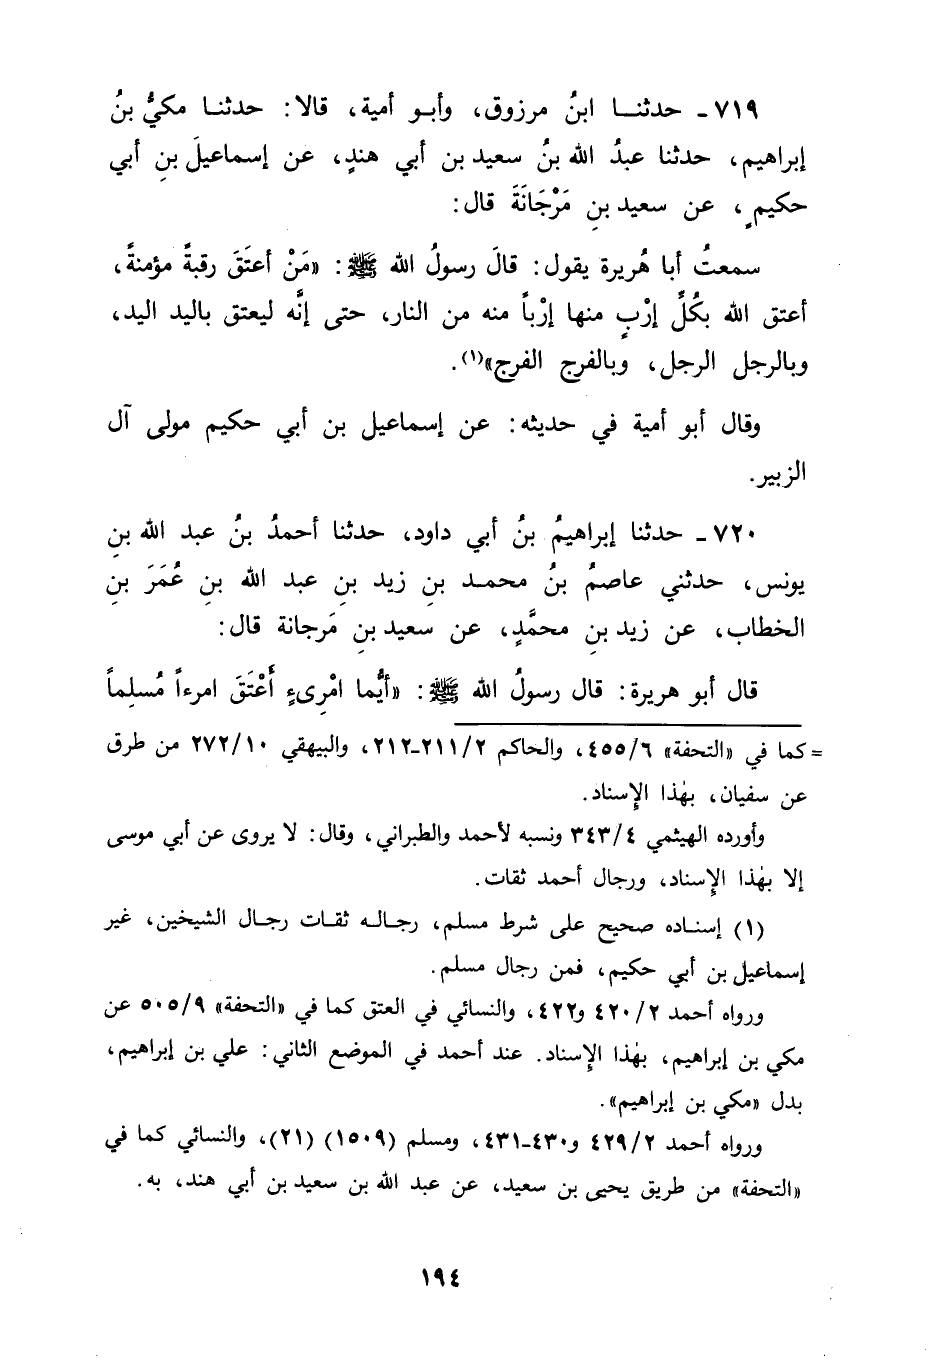 ٧١٩ـ حدثنـــا ابنُ مرزوق، وأبـو أمية، قالا: حدثنـا مكيُّ بنُ
إبراهيم، حدثنا عبدُ الله بنُ سعيد بن أبي هندٍ، عن إسماعيلَ بنِ أبي
حكيمٍ، عن سعيد بنِ مَرْجَانَةَ قال:
سمعتُ أبا هُريرة يقول: قالَ رسولُ الله ﷺ: «مَنْ أعتَقَ رقبةً مؤمنةً،
أعتق الله بكُلِّ إرْبٍ منها إرْباً منه من النار، حتى إنَّه ليعتق باليد اليد،
وبالرجل الرجل، وبالفرج الفرج»(١).
وقال أبو أمية في حديثه: عن إسماعيل بن أبي حكيم مولى آل
الزبير.
٧٢٠ـ حدثنا إبراهيمُ بنُ أبي داود، حدثنا أحمدُ بنُ عبد الله بنِ
يونس، حدثني عاصمُ بنُ محمـد بنِ زيد بنِ عبد الله بنِ عُمَرَ بنِ
الخطاب، عن زيد بنِ محمَّدٍ، عن سعيد بنِ مَرجانة قال:
قال أبو هريرة: قال رسولُ الله ﷺ: «أيُّما امْرِىءٍ أَعْتَقَ امرءاً مُسلِماً
= كما في «التحفة» ٤٥٥/٦، والحاكم ٢١١/٢-٢١٢، والبيهقي ٢٧٢/١٠ من طرق
عن سفيان، بهٰذا الإسناد.
وأورده الهيثمي ٣٤٣/٤ ونسبه لأحمد والطبراني، وقال: لا يروى عن أبي موسى
إلا بهٰذا الإسناد، ورجال أحمد ثقات.
(١) إسنـاده صحيح على شرط مسلم، رجـالـه ثقـات رجـال الشيخين، غير
إسماعيل بن أبي حكيم، فمن رجال مسلم.
ورواه أحمد ٤٢٠/٢ و٤٢٢، والنسائي في العتق كما في «التحفة» ٥٠٥/٩ عن
مكي بن إبراهيم، بهٰذا الإسناد. عند أحمد في الموضع الثاني: علي بن إبراهيم،
بدل «مكي بن إبراهيم».
ورواه أحمد ٤٢٩/٢ و٤٣٠-٤٣١، ومسلم (١٥٠٩) (٢١)، والنسائي كما في
«التحفة» من طريق يحيى بن سعيد، عن عبد الله بن سعيد بن أبي هند، به.
١٩٤